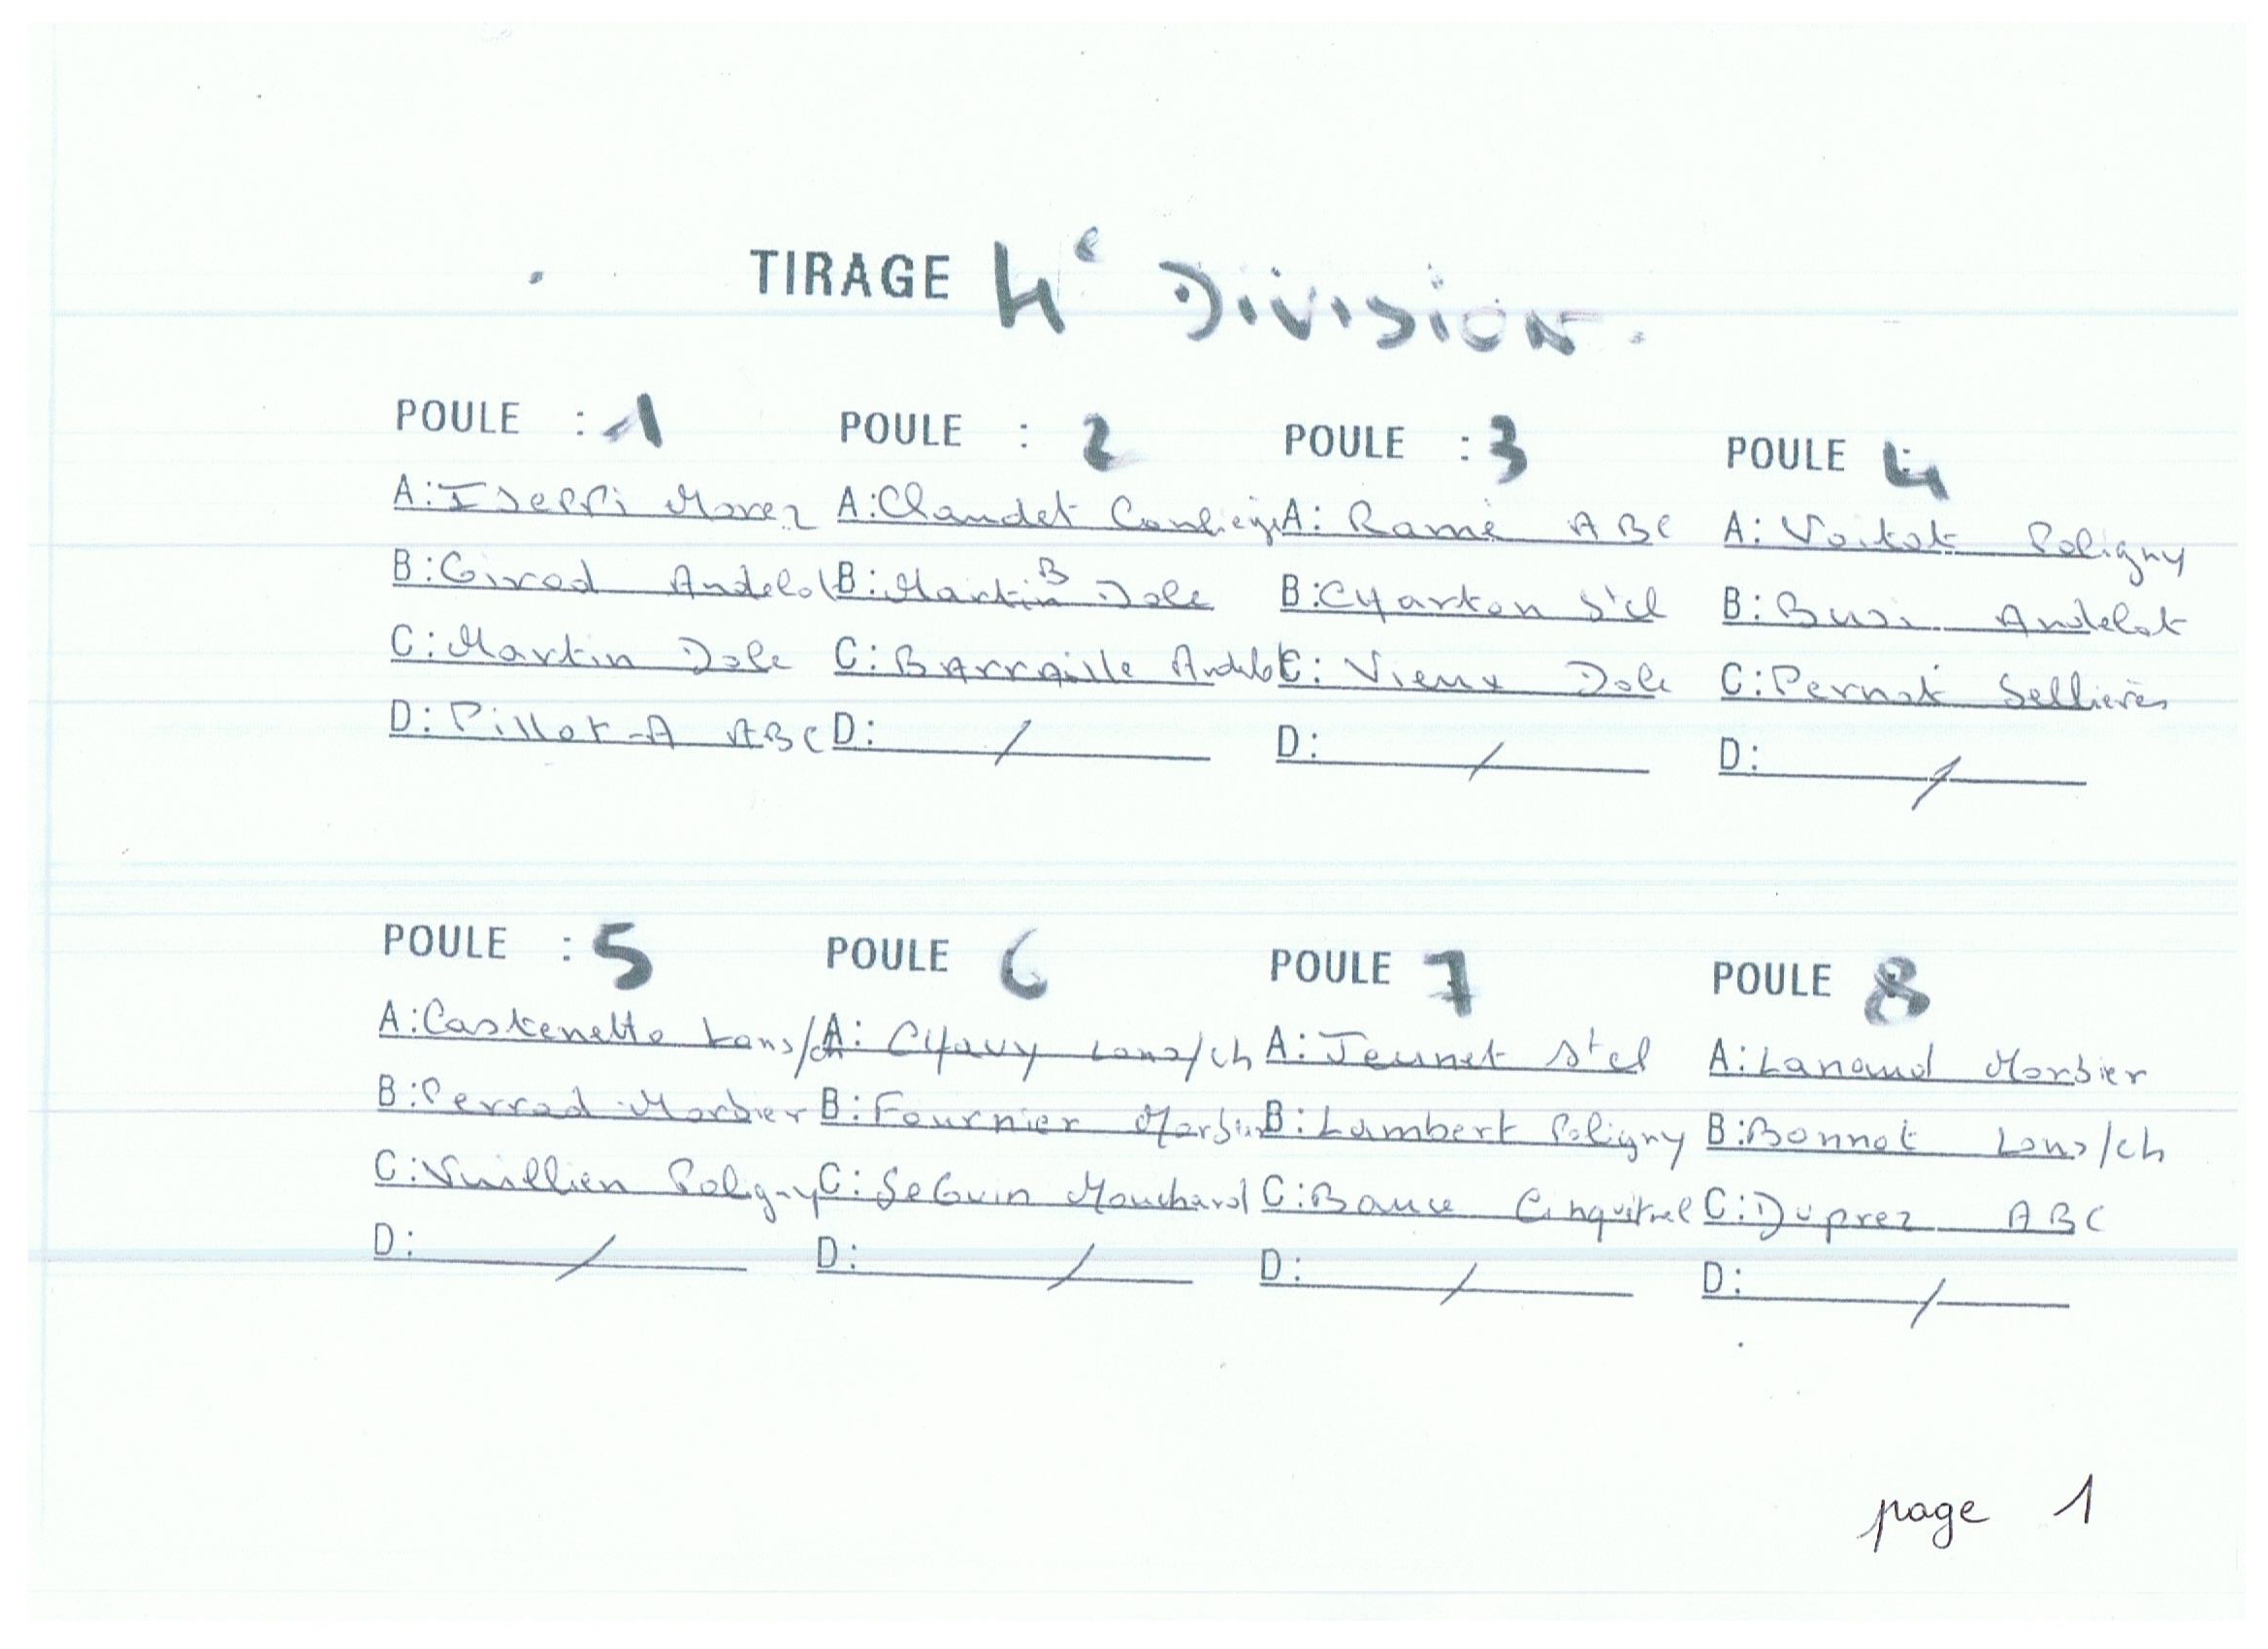 TIRAGE 4e Division.
POULE : 1 POULE : 2 POULE : 3 POULE : 4
A: Morez A: Claudet A: Ramé ABC A: Voitot Poligny
B: Girod Andelot B: Martin B Dole B: CHarton St cl B: Busi Andelot
C: Martin Dole C: BArraille Andelot C: Vieux Dole C: Pernot Sellières
D: Pillot-A ABC D: / D: / D: /
POULE : 5 POULE 6 POULE 7 POULE 8
A: Lons/ch A: CHavy Lons/ch A: Jeunet St cl A: Lanaud Morbier
B: Perrad Morbier B: Fournier Morbier B: Lambert Poligny B: Bonnot Lons/ch
C: Vuillien Poligny C: SeGuin Mouchard C: C: Duprez ABC
D: / D: / D: / D: /
page 1